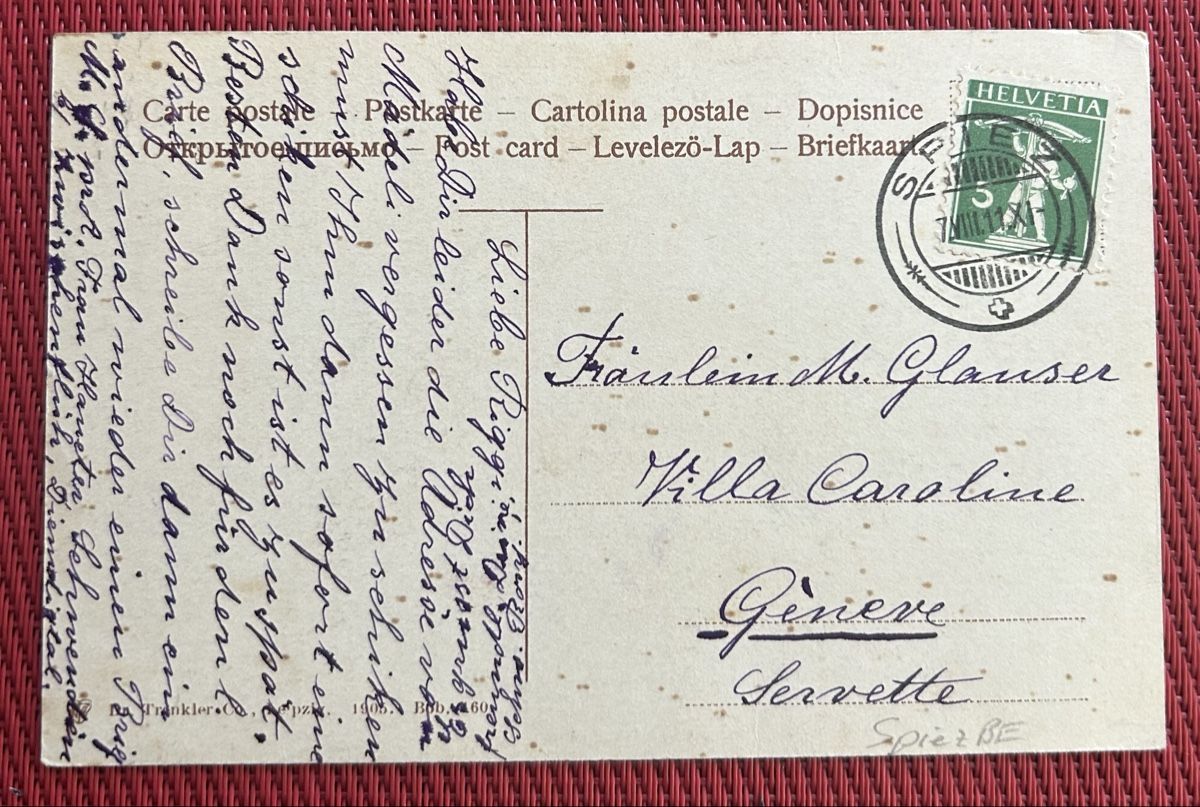 Carte postale – Postkarte – Cartolina postale – Dopisnice
Открытое письмо – Post card – Levelezö-Lap – Briefkaart
HELVETIA
5
SPIEZ
7.VIII.11.XI-
Liebe Riggi!
Habe Dir leider die Adresse von
Mädeli vergessen zu schiken
must Ihm dann sofort eine
schiken sonst ist es zu spät.
Besten Dank noch für den l.
Brief, schreibe Dir dann ein
andermal wieder einen Brief
M. G. Frau Schwenden
Zwischenflüh, Diemtigtal.
Fräulein M. Glauser
Villa Caroline
Gèneve
Servette
Dr. Trenkler Co., Leipzig. 1905. Bbb. 160
Spiez BE